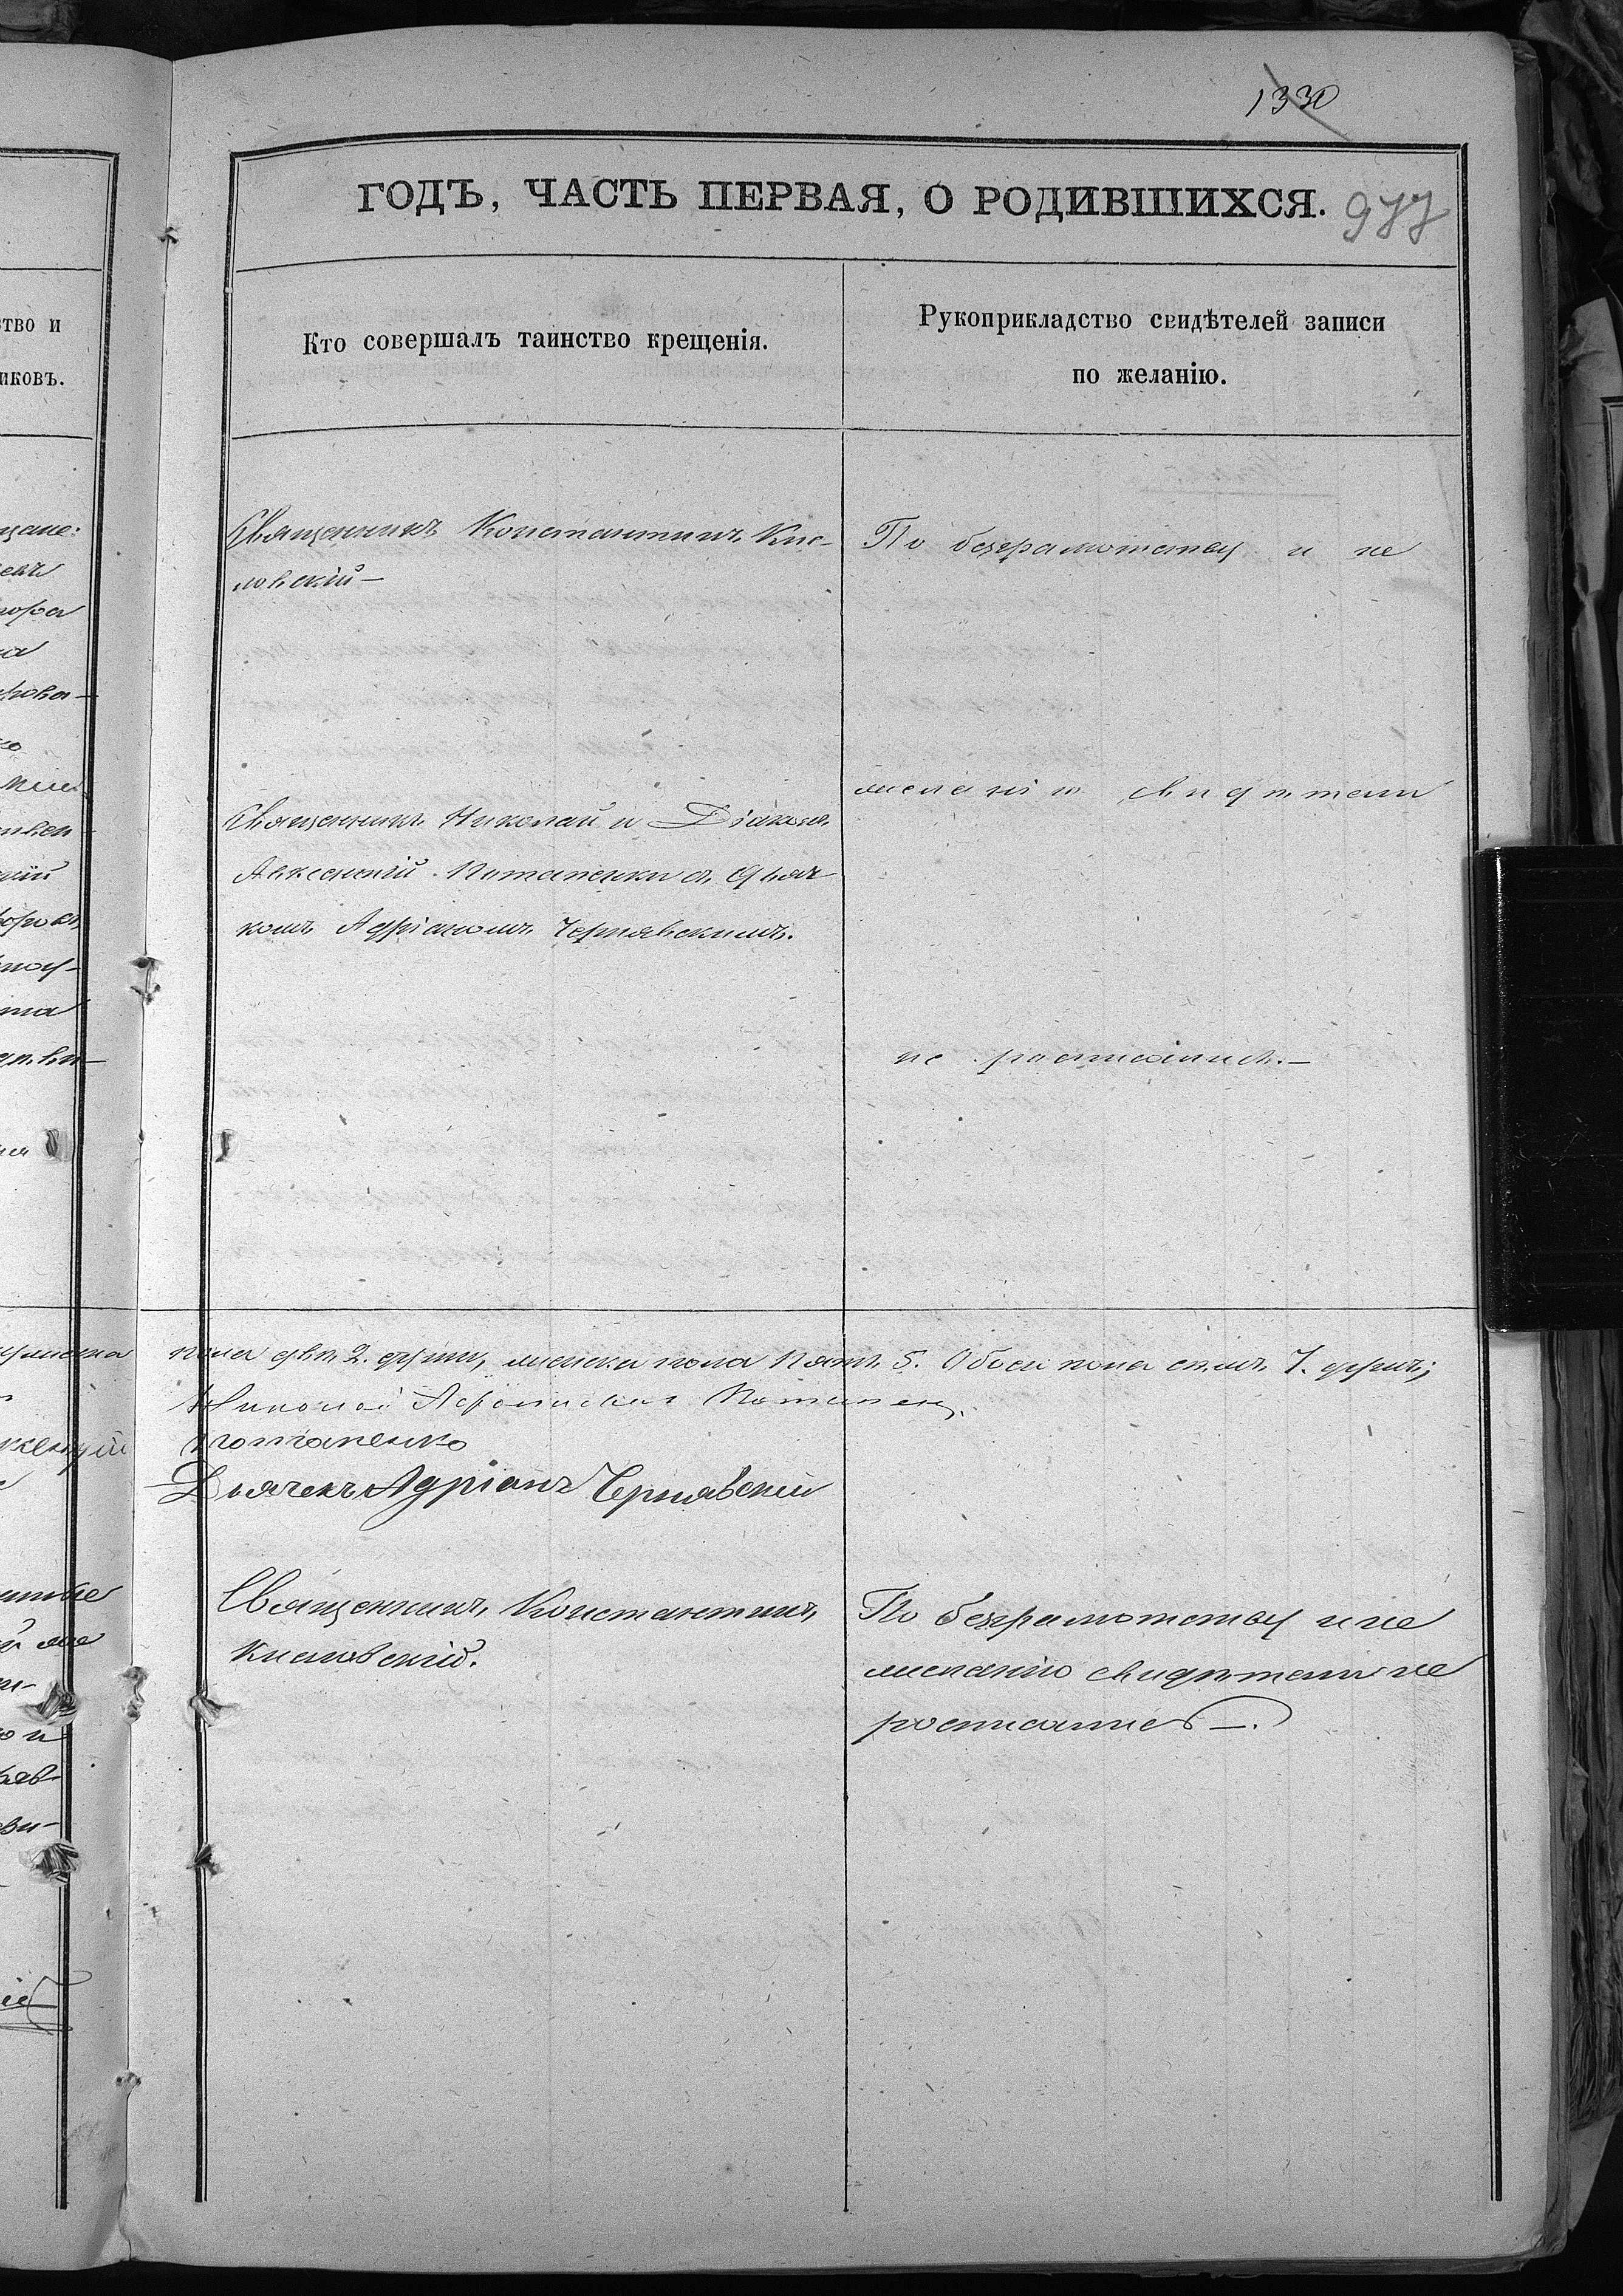 1330
ГОДЪ, ЧАСТЬ ПЕРВАЯ, О РОДИВШИХСЯ. 977
ство и
иковъ.
Кто совершалъ таинство крещенія.
Рукоприкладство свидѣтелей записи
по желанію.
Священникъ Константинъ Кис-
ловскій —
По безграмотству и не
желанію свидѣтели
Священникъ Николай и Діаконъ
Авксентій Потапенки съ дьяч-
комъ Адріаномъ Чернявскимъ.
не росписались. —
пола двѣ 2. души, женска пола пять 5. Обоего пола семь 7. душъ;
Николай
Потапенко
Дьячекъ Адріанъ Чернявскій
Священникъ Константинъ
Кисловскій.
По безграмотству и не
желанію свидѣтели не
росписались —.